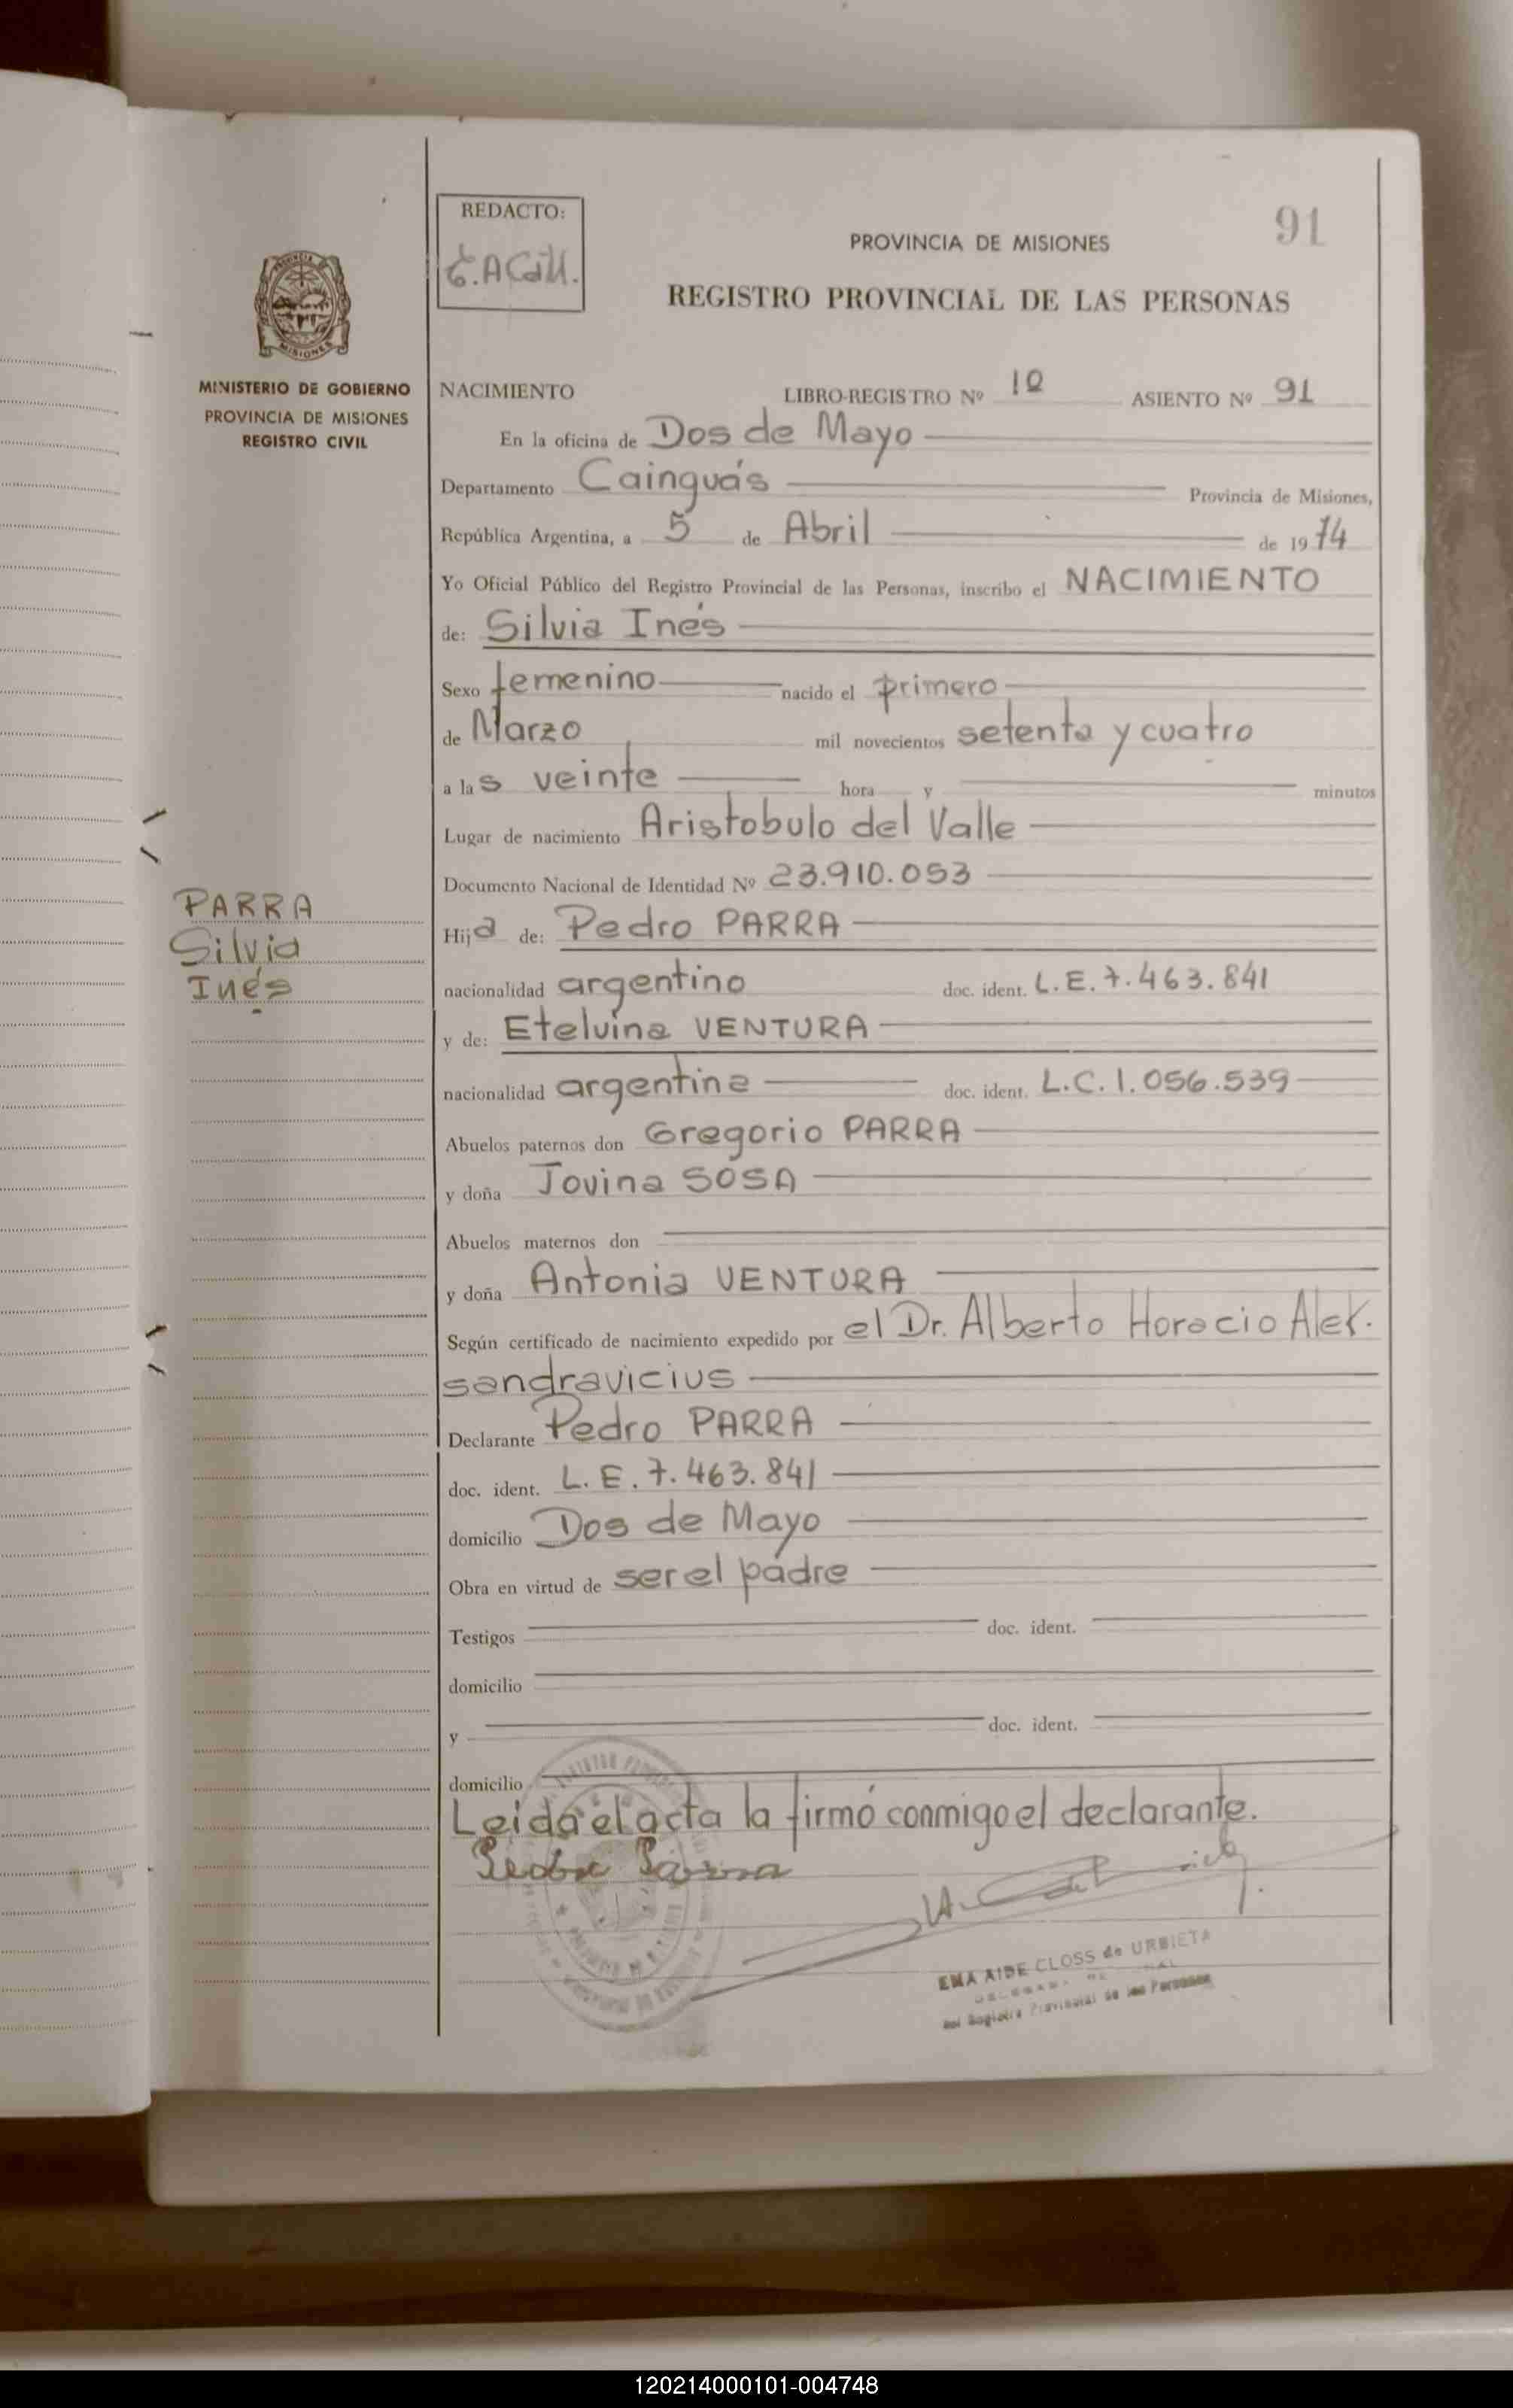 REDACTO:
91
PROVINCIA DE MISIONES
REGISTRO PROVINCIAL DE LAS PERSONAS
MISIONES
MINISTERIO DE GOBIERNO
PROVINCIA DE MISIONES
REGISTRO CIVIL
NACIMIENTO LIBRO-REGISTRO Nº 10 ASIENTO Nº 91
En la oficina de Dos de Mayo
Departamento Cainguás Provincia de Misiones,
República Argentina, a 5 de Abril de 1974
Yo Oficial Público del Registro Provincial de las Personas, inscribo el NACIMIENTO
de: Silvia Inés
Sexo femenino nacido el primero
de Marzo mil novecientos setenta y cuatro
a las veinte hora y minutos
Lugar de nacimiento Aristobulo del Valle
Documento Nacional de Identidad Nº 23.910.053
PARRA
Silvia
Inés
Hija de: Pedro PARRA
nacionalidad argentino doc. ident. L.E. 7.463.841
y de: Etelvina VENTURA
nacionalidad argentina doc. ident. L.C. 1.056.539
Abuelos paternos don Gregorio PARRA
y doña Jovina SOSA
Abuelos maternos don
y doña Antonia VENTURA
Según certificado de nacimiento expedido por el Dr. Alberto Horacio Alek.
sandravicius
Declarante Pedro PARRA
doc. ident. L. E. 7.463.841
domicilio Dos de Mayo
Obra en virtud de ser el padre
Testigos doc. ident.
domicilio
y doc. ident.
domicilio
Leida el acta la firmó conmigo el declarante.
Pedro Parra
EMA AIDE CLOSS de URBIETA
del Registro Provincial de las Personas
120214000101-004748